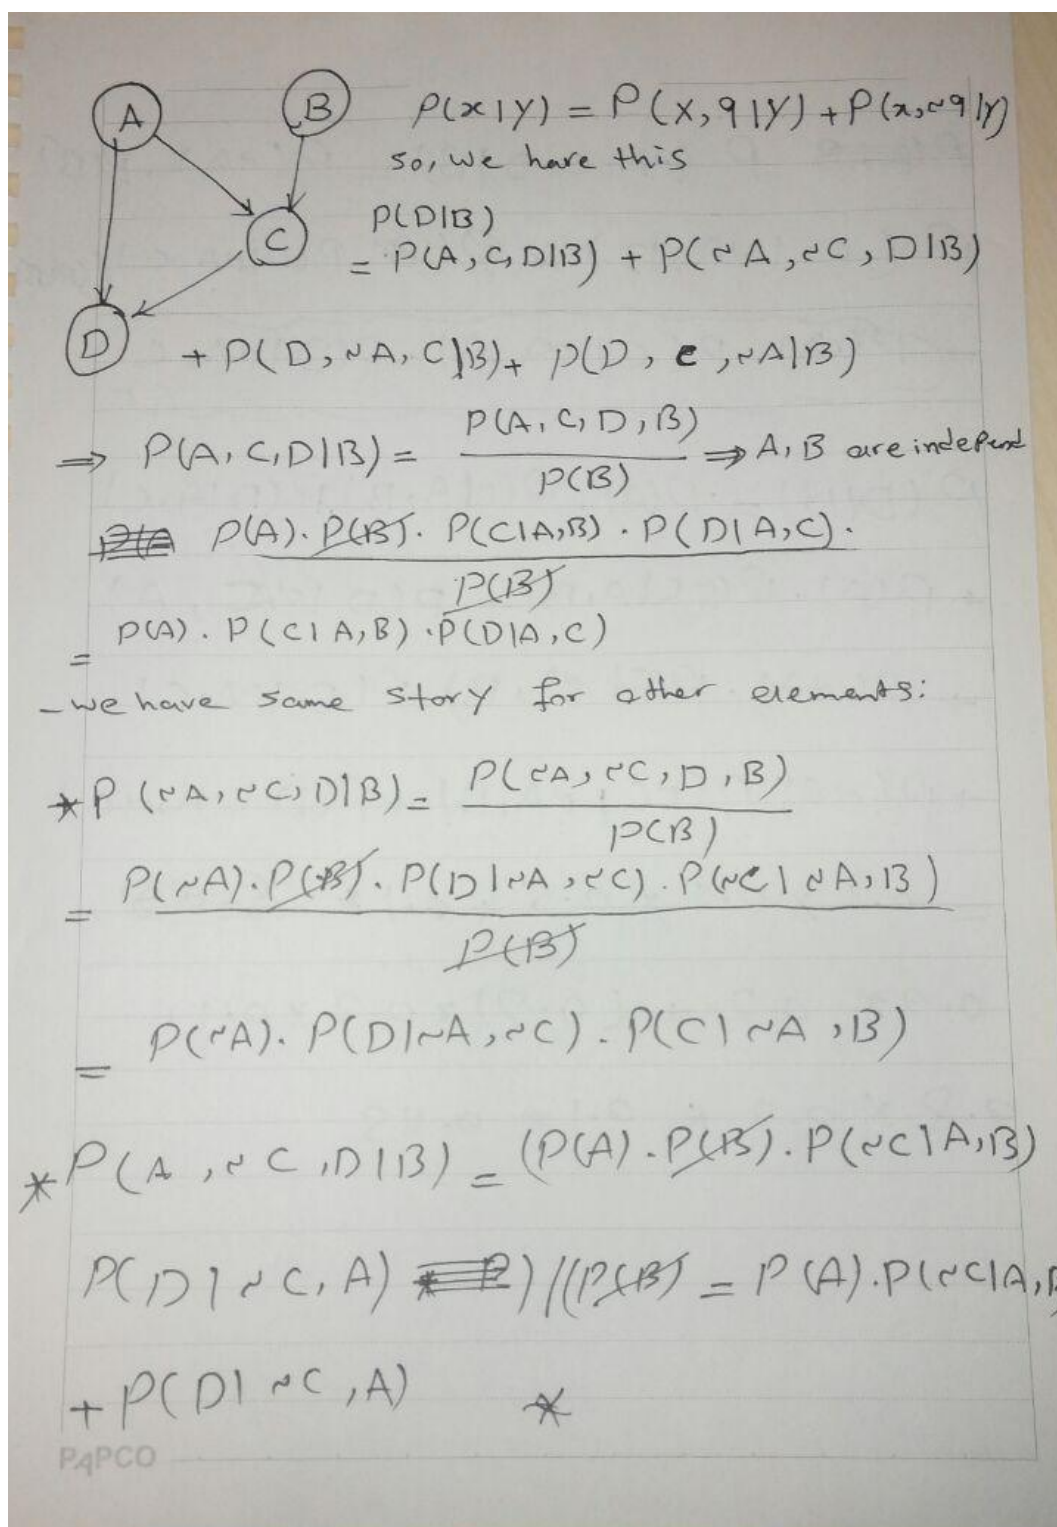 A B P(x|y) = P(x, q|y) + P(x, ~q|y)
so, we have this
C P(D|B)
= P(A, C, D|B) + P(~A, ~C, D|B)
D + P(D, ~A, C|B) + P(D, c, ~A|B)
⇒ P(A, C, D|B) = P(A, C, D, B) / P(B) ⇒ A, B are independ
P(A). P(B). P(C|A,B) . P(D|A,C).
P(B)
= P(A) . P(C|A,B) . P(D|A,C)
- we have same story for other elements:
* P(~A, ~C, D|B) = P(~A, ~C, D, B) / P(B)
= P(~A). P(B). P(D|~A, ~C). P(~C|~A, B)
P(B)
= P(~A). P(D|~A, ~C). P(C|~A, B)
* P(A, ~C, D|B) = (P(A). P(B). P(~C|A,B)
P(D|~C, A) ) / ((P(B) = P(A). P(~C|A,B
+ P(D|~C, A) *
PAPCO